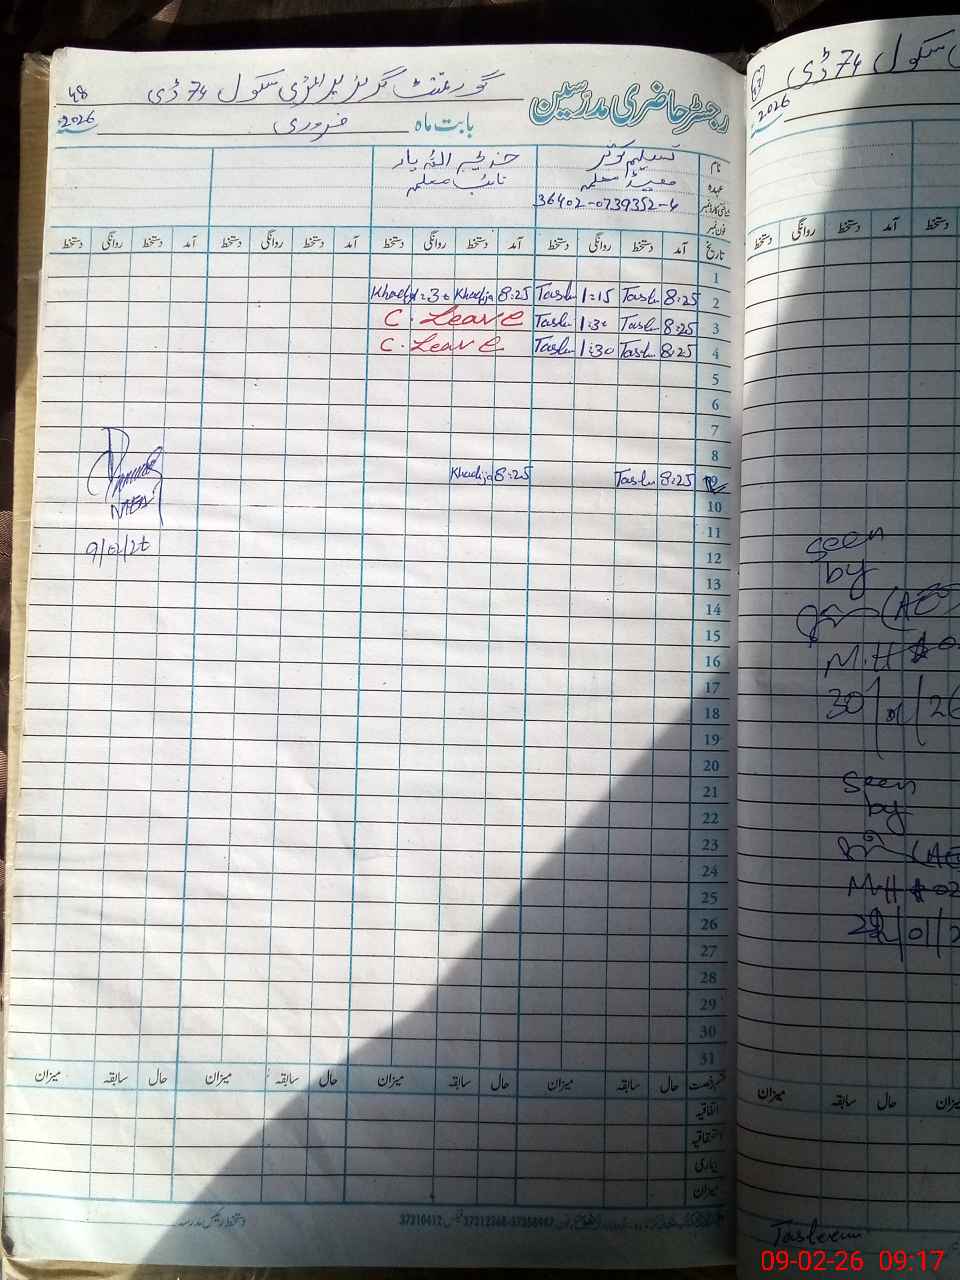 48 گورنمنٹ گرلز پرائمری سکول 74 ڈی
رجسٹر حاضری مدرسین
بابت ماہ فروری 2026
نام تسلیم کوثر خدیجہ اللہ یار
عہدہ معلمہ نائب معلمہ
36402-0739352-4
فون نمبر
تاریخ آمد دستخط روانگی دستخط آمد دستخط روانگی دستخط آمد دستخط روانگی دستخط آمد دستخط روانگی دستخط
1
2 8:25 Taslu 1:15 Taslu 8:25 Khadija 1:30 Khadija
3 8:25 Taslu 1:30 Taslu C. Leave
4 8:25 Taslu 1:30 Taslu C. Leave
5
6
7
8
8:25 Taslu 8:25 Khadija
10
11
12
13
14
15
16
17
18
19
20
21
22
23
24
25
26
27
28
29
30
31
9/02/26
حال سابقہ میزان حال سابقہ میزان حال سابقہ میزان حال سابقہ میزان
اتفاقیہ
بیماری
میزان
دستخط رئیس مدرسہ
37210412
74 ڈی
2026
آمد دستخط روانگی دستخط
seen
by
(AEO
M.H
30/01/26
seen
by
(AEO
M.H
22/01/2
حال سابقہ میزان
Tasleem
09-02-26 09:17